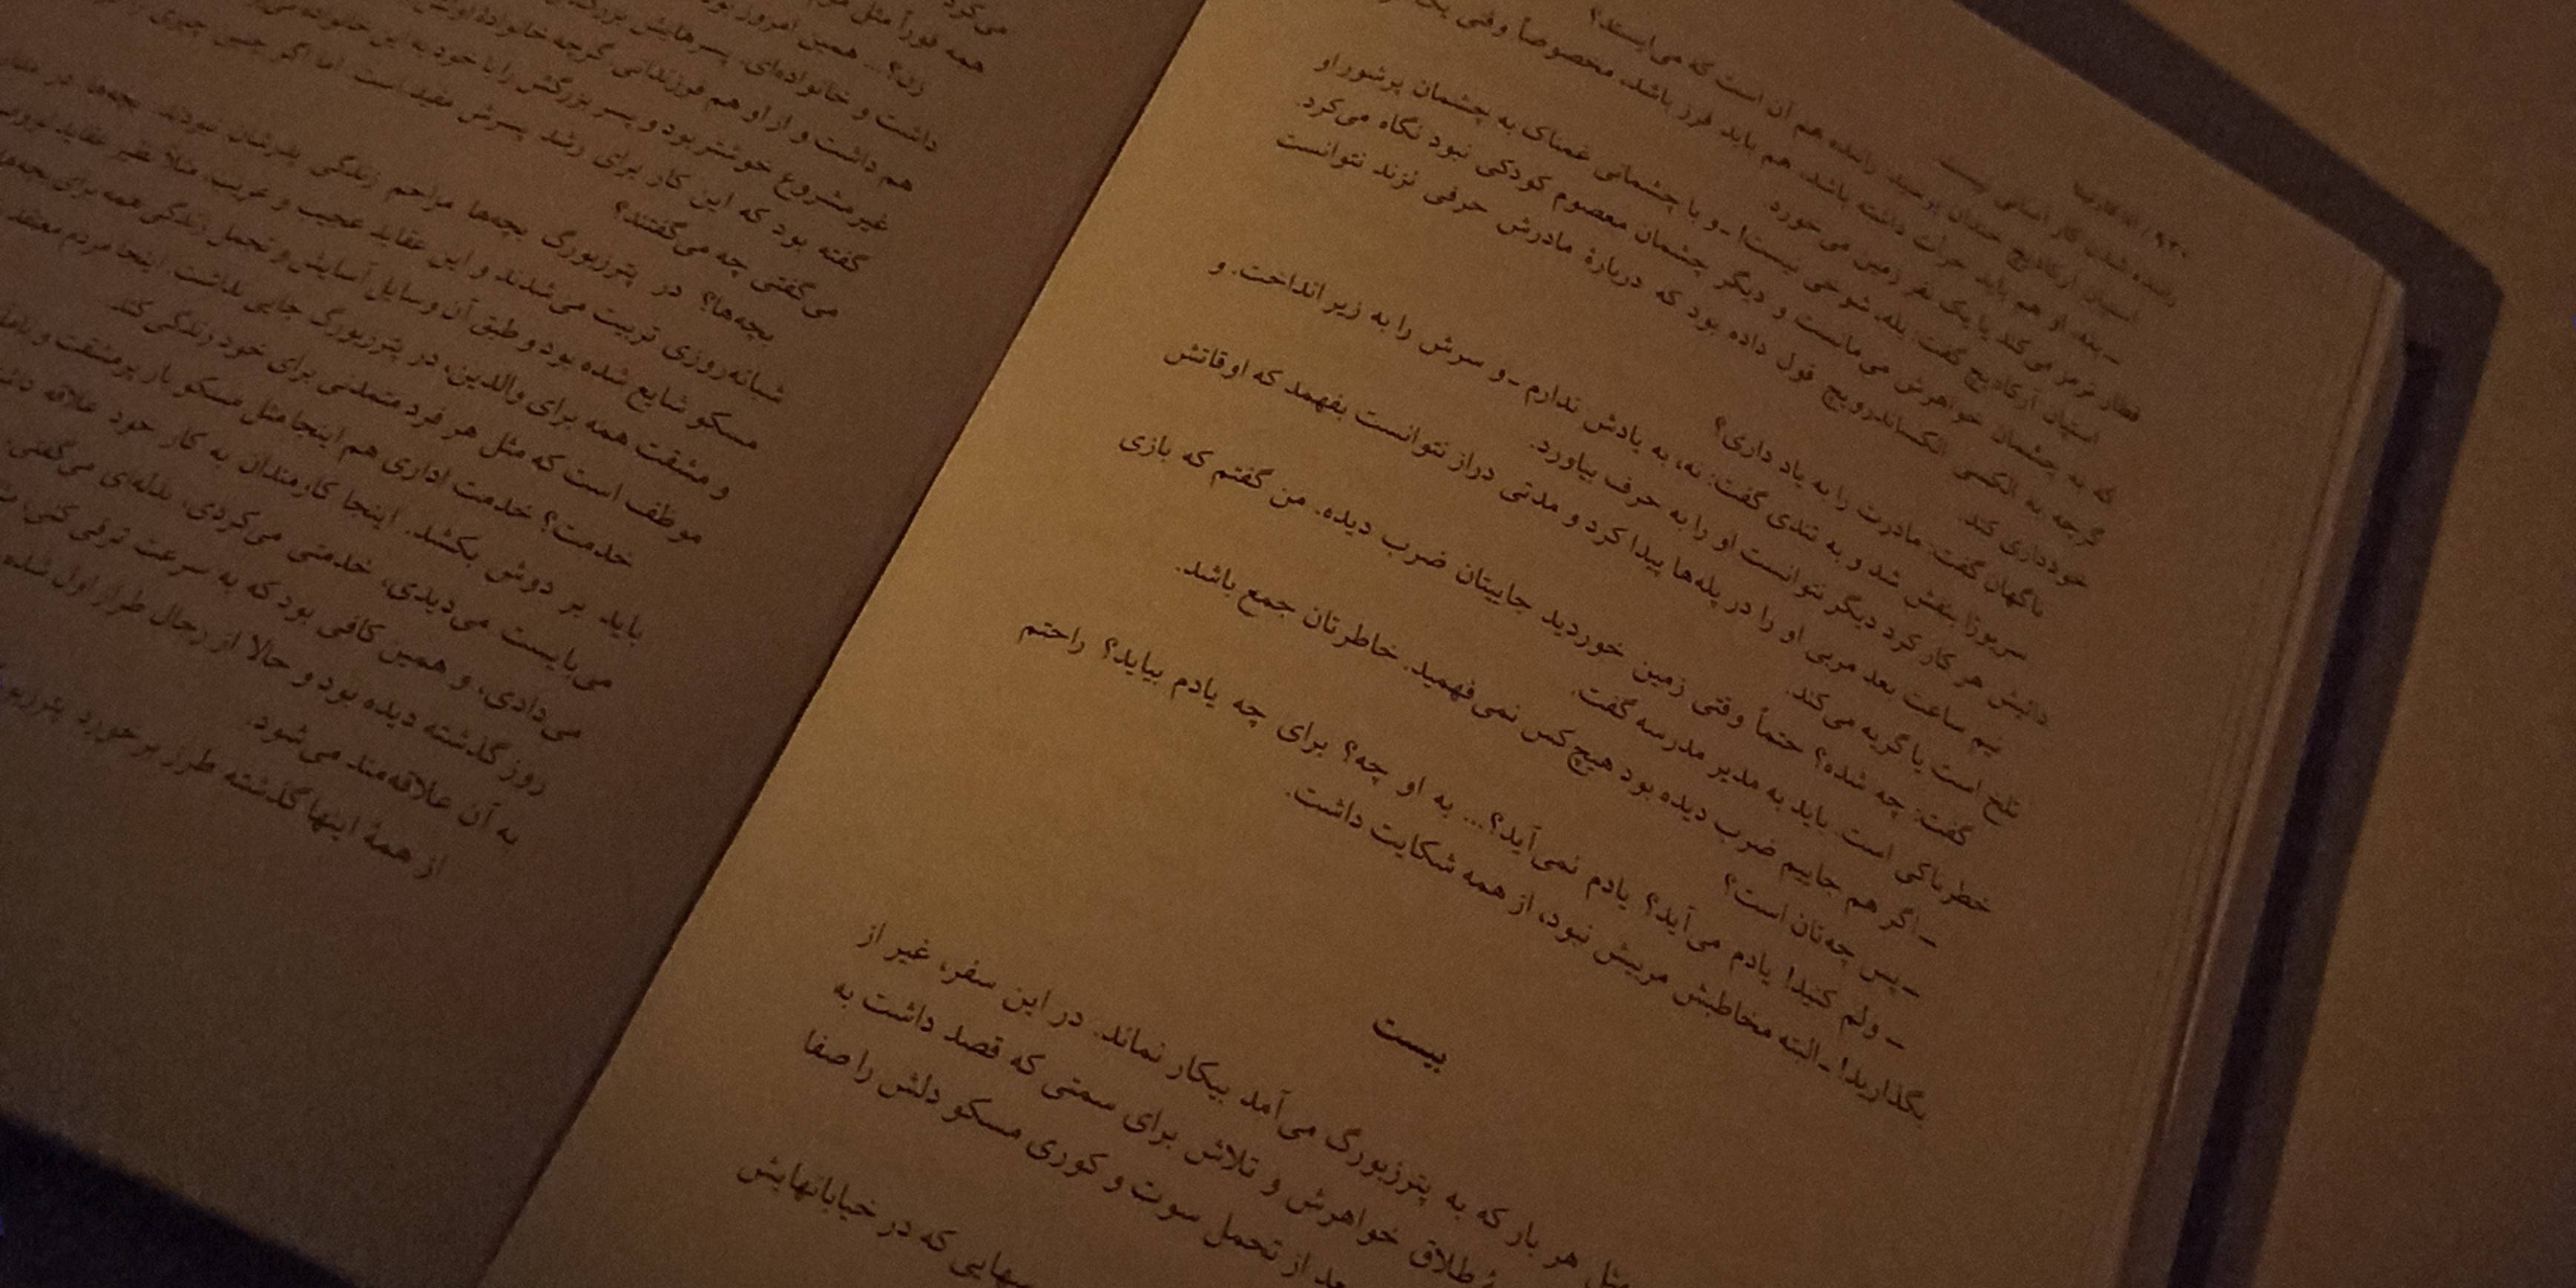 ۹۳۰ / آنا کارنینا
راننده شدن کار آسانی نیست.
استپان آرکادیچ خندان پرسید: راننده هم آن است که می‌ایستد؟
ـ بله، او هم باید جرأت داشته باشد، هم باید فرز باشد، مخصوصاً وقتی
قطار ترمز می‌کند یا یک نفر زمین می‌خورد.
استپان آرکادیچ گفت: بله، شوخی نیست! ـ و با چشمانی غمناک به چشمان پرشور او
که به چشمان خواهرش می‌مانست و دیگر چشمان معصوم کودکی نبود نگاه می‌کرد.
گرچه به الکسی الکساندرویچ قول داده بود که دربارهٔ مادرش حرفی نزند نتوانست
خودداری کند.
ناگهان گفت: مادرت را به یاد داری؟
سریوژا بنفش شد و به تندی گفت: نه، به یادش ندارم ـ و سرش را به زیر انداخت. و
دائیش هر کار کرد دیگر نتوانست او را به حرف بیاورد.
نیم ساعت بعد مربی او را در پله‌ها پیدا کرد و مدتی دراز نتوانست بفهمد که اوقاتش
تلخ است یا گریه می‌کند.
گفت: چه شده؟ حتماً وقتی زمین خوردید جاییتان ضرب دیده. من گفتم که بازی
خطرناکی است. باید به مدیر مدرسه گفت.
ـ اگر هم جاییم ضرب دیده بود هیچ کس نمی‌فهمید. خاطرتان جمع باشد.
ـ پس چه‌تان است؟
ـ ولم کنید! یادم می‌آید؟ یادم نمی‌آید؟... به او چه؟ برای چه یادم بیاید؟ راحتم
بگذارید! ـ البته مخاطبش مربیش نبود، از همه شکایت داشت.
بیست
مثل هر بار که به پترزبورگ می‌آمد بیکار نماند. در این سفر، غیر از
طلاق خواهرش و تلاش برای سمتی که قصد داشت به
بعد از تحمل سوت و کوری مسکو دلش را صفا
که در خیابانهایش
می‌کرد
همه فوراً مثل
زن؟... همین امروز
داشت و خانواده‌ای. پسرهایش
هم داشت و از او هم فرزندانی گرچه خانوادهٔ
غیرمشروع خوشتر بود و پسر بزرگش را با خود به این خانواده
گفته بود که این کار برای رشد پسرش مفید است اما اگر چنین چیزی را
می‌گفتی چه می‌گفتند؟
بچه‌ها؟ در پترزبورگ بچه‌ها مزاحم زندگی پدرشان نبودند. بچه‌ها در
شبانه‌روزی تربیت می‌شدند و این عقاید عجیب و غریب، مثلاً نظیر عقاید
مسکو شایع شده بود و طبق آن وسایل آسایش و تجمل زندگی همه برای بچه‌ها
و مشقت همه برای والدین، در پترزبورگ جایی نداشت. اینجا مردم معتقد
موظف است که مثل هر فرد متمدنی برای خود زندگی کند.
خدمت؟ خدمت اداری هم اینجا مثل مسکو بار پرمشقت و
باید بر دوش بکشد. اینجا کارمندان به کار خود علاقه
می‌بایست می‌دیدی، خدمتی می‌کردی، بذله‌ای می‌گفتی
می‌دادی، و همین کافی بود که به سرعت ترقی کنی،
روز گذشته دیده بود و حالا از رجال طراز اول شده
به آن علاقه‌مند می‌شود.
از همهٔ اینها گذشته طرز برخورد